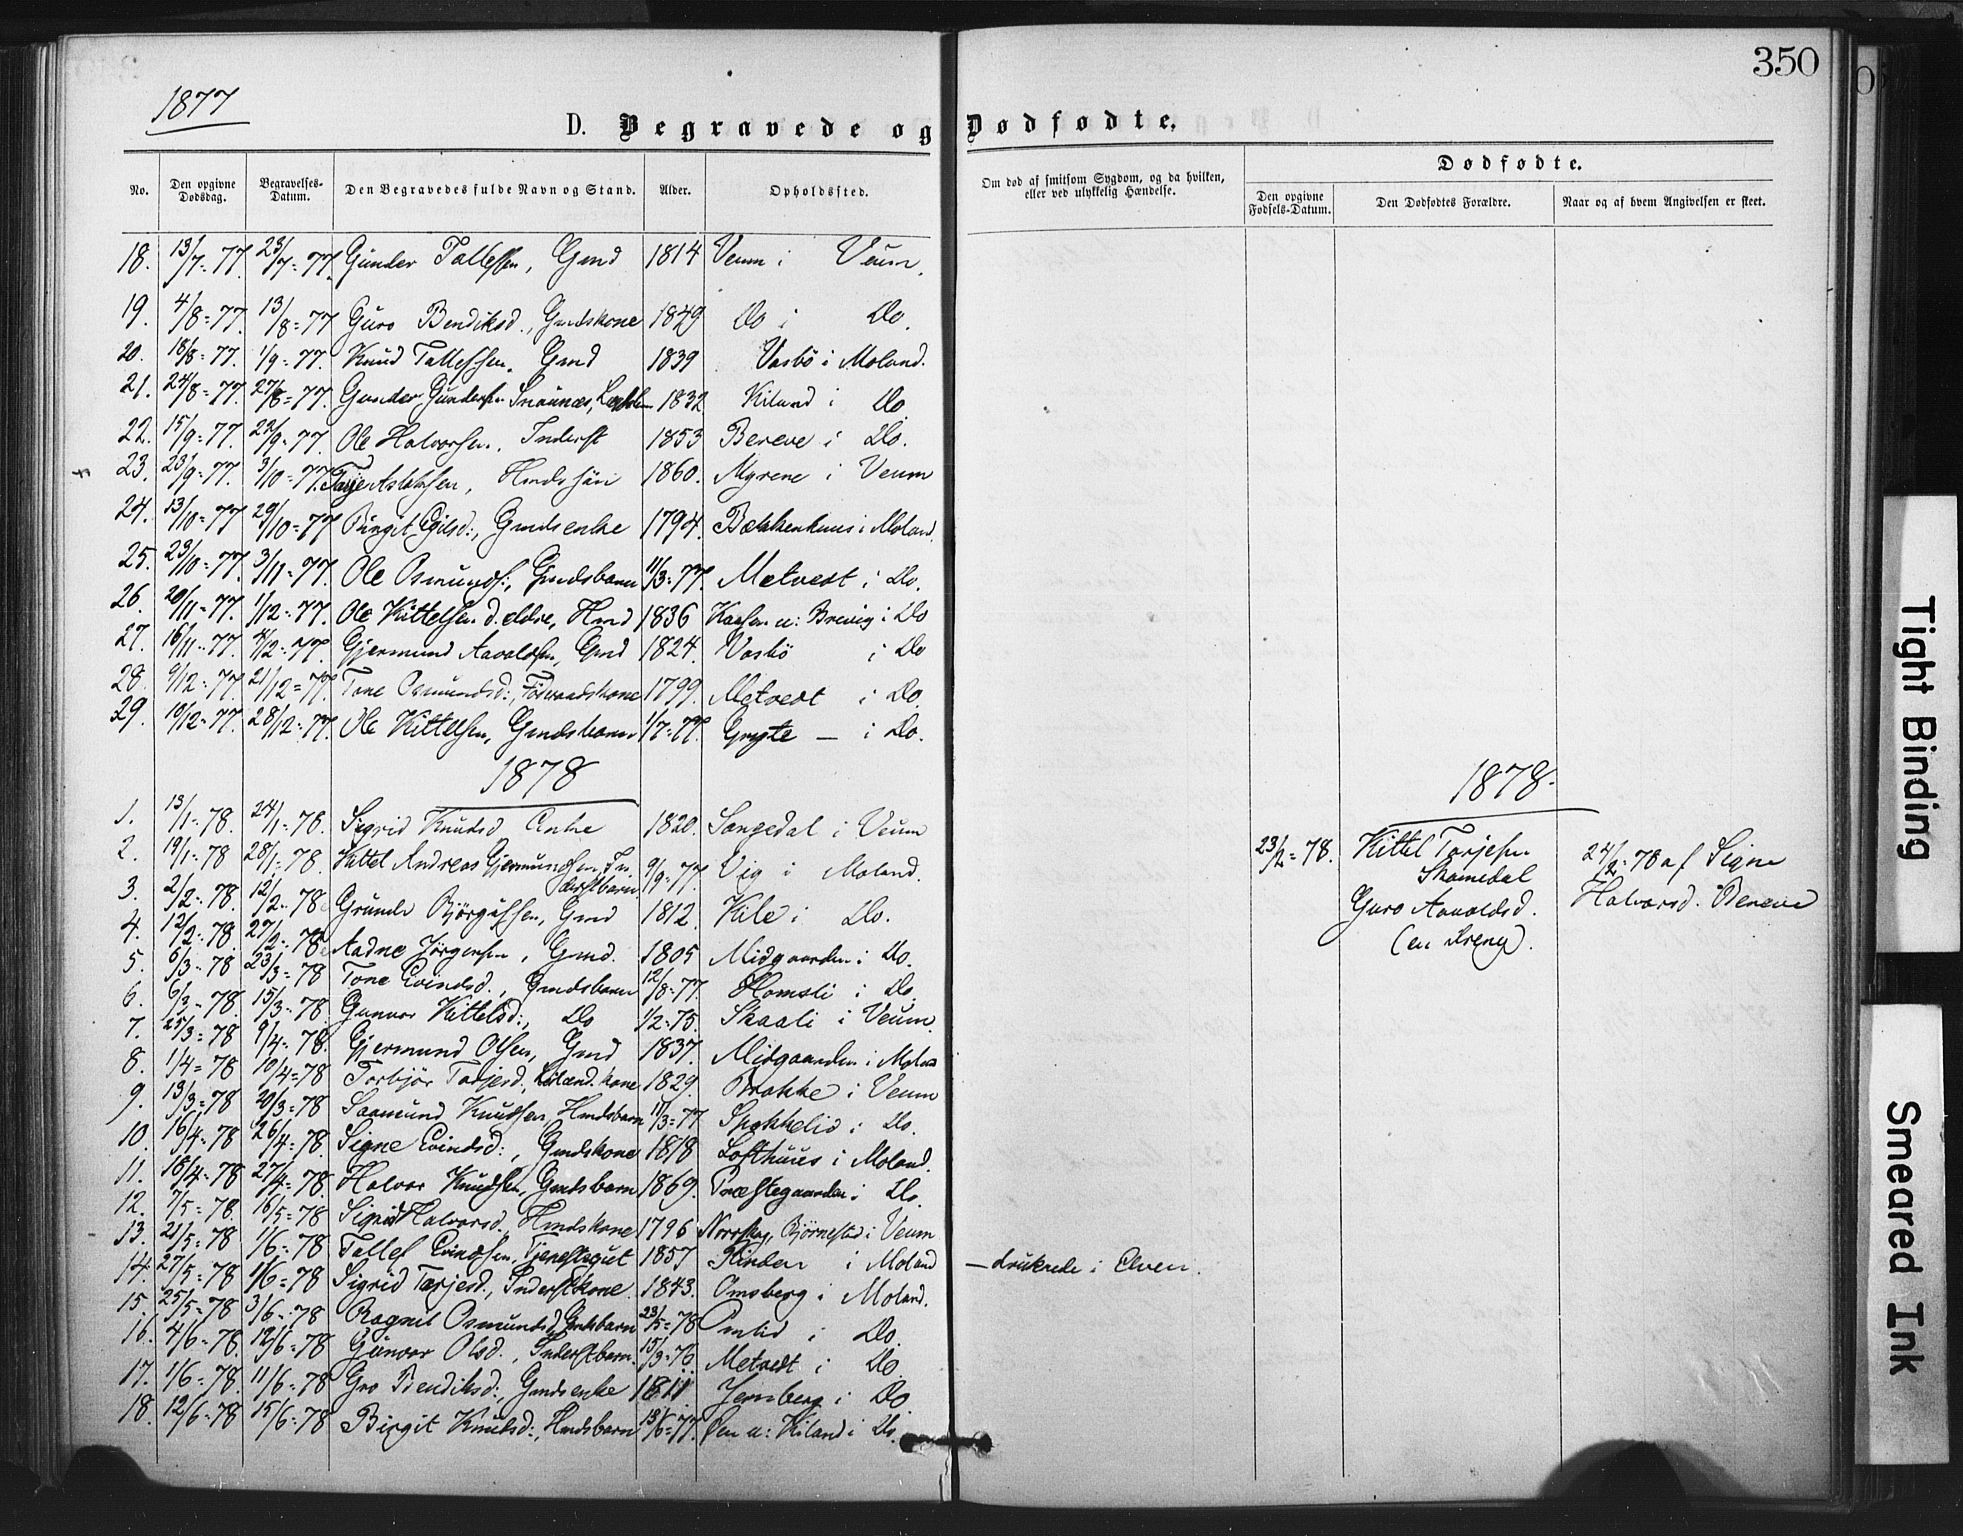 350
1877
D. Begravede og Dødfødte.
No. Den opgivne Dødsdag. Begravelses-Datum. Den Begravedes fulde Navn og Stand. Alder. Opholdssted. Om død af smitsom Sygdom, og da hvilken, eller ved ulykkelig Hændelse. Dødfødte. Den opgivne Fødsels-Datum. Den Dødfødtes Forældre. Naar og af hvem Angivelsen er skeet.
18. 13/7=77. 23/7=77. Gunder Tallefsen, Gmd 1814 Veum i Veum.
19. 4/8=77. 13/8=77 Guro Bendiksd., Gmdskone 1849 Do i Do.
20. 18/8=77. 1/9=77. Knud Tallefsen, Gmd 1839 Vasbö i Moland.
21. 24/8=77. 27/8=77. Gunder Gundersen Snaunæs, 1832 Kiland i Do.
22. 15/9=77. 22/9=77. Ole Halvorsen, Inderst 1853 Bereve i Do.
23. 23/9=77. 3/10=77. Tarje Aslaksen, Hmdssön 1860. Myrene i Veum
24. 13/10=77 29/10=77 Birgit Egilsd:, Gmdsenke 1794. Bækkenhuus i Moland.
25. 23/10=77. 3/11=77. Ole Osmunds:, Gmdsbarn 11/3=77. Metvedt i Do.
26. 20/11=77. 1/12=77. Ole Kittelsen d. eldre, Hmd 1836 Kaasen u: Brevig i Do
27. 16/11=77. 4/12=77. Gjermund Aavaldsen, Gmd 1824. Vasbö i Do
28. 9/12=77. 21/12=77. Tone Osmundsd:, Föderaadskone 1799. Metvedt i Do.
29. 19/12=77. 28/12=77. Ole Kittelsen, Gmdsbarn 1/7=77. Gryte — i Do.
1878
1878.
1. 13/1=78. 24/1=78. Sigrid Knudsd Enke 1820. Songedal i Veum
2. 19/1=78 28/1=78. Kittel Andreas Gjermundsen, Inderstbarn 9/9=77. Vig i Moland.
3. 2/2=78. 12/2=78 Grunde Björgufsen, Gmd 1812. Kile i Do.
4. 12/2=78. 27/2=78. Aadne Jörgensen, Gmd. 1805 Midgaarden i Do.
5. 6/3=78 23/3=78 Tone Eivindsd., Gmdsbarn 12/8=77. Homsli i Do.
6. 9/3=78. 15/3=78. Gunvor Kittelsd:, Do 1/2=75. Skaali i Veum.
7. 25/3=78 9/4=78. Gjermund Olsen, Gmd 1837. Midgaarden i Moland
8. 1/4=78 10/4=78 Torbjör Tarjesd., kone 1829. Brokke i Veum
9. 13/3=78 20/3=78 Saamund Knudsen, Hmdsbarn 11/3=77 Spokkelid i Do.
10. 16/4=78 26/4=78. Signe Eivindsd:, Gmdskone 1818 Lofthuus i Moland.
11. 18/4=78 27/4=78. Halvor Knudsen, Gmdsbarn 1869. Præstegaarden i Do.
12. 7/5=78. 16/5=78 Sigrid Halvorsd., Hmdskone 1796 Norrskog, Björnestad i Veum
13. 21/5=78 1/6=78 Tallef Eivindsen, Tjenestegut 1857 Rinden i Moland —druknede i Elven.
14. 27/5=78 1/6=78 Sigrid Tarjesd., Inderstkone. 1843. Omsberg i Moland.
15. 25/5=78 3/6=78 Ragnil Osmundsd, Gmdsbarn 23/5=78 Omlid i Do.
16. 4/6=78. 12/6=78 Gunvor Olsd., Inderstbarn. 15/3=76 Metvedt i Do.
17. 1/6=78. 11/6=78 Gro Bendiksd:, Gmdsenke 1811 Jernberg i Do
18. 12/6=78 15/6=78 Birgit Knudsd:, Hmdsbarn 13/6=77. Öen u: Kiland i Do.
23/2=78. Kittel Tarjesen Skomedal
Guro Aavoldsd.
(en Dreng).
24/2=78 af Signe
Halvorsd. Bereve
Tight Binding
Smeared Ink